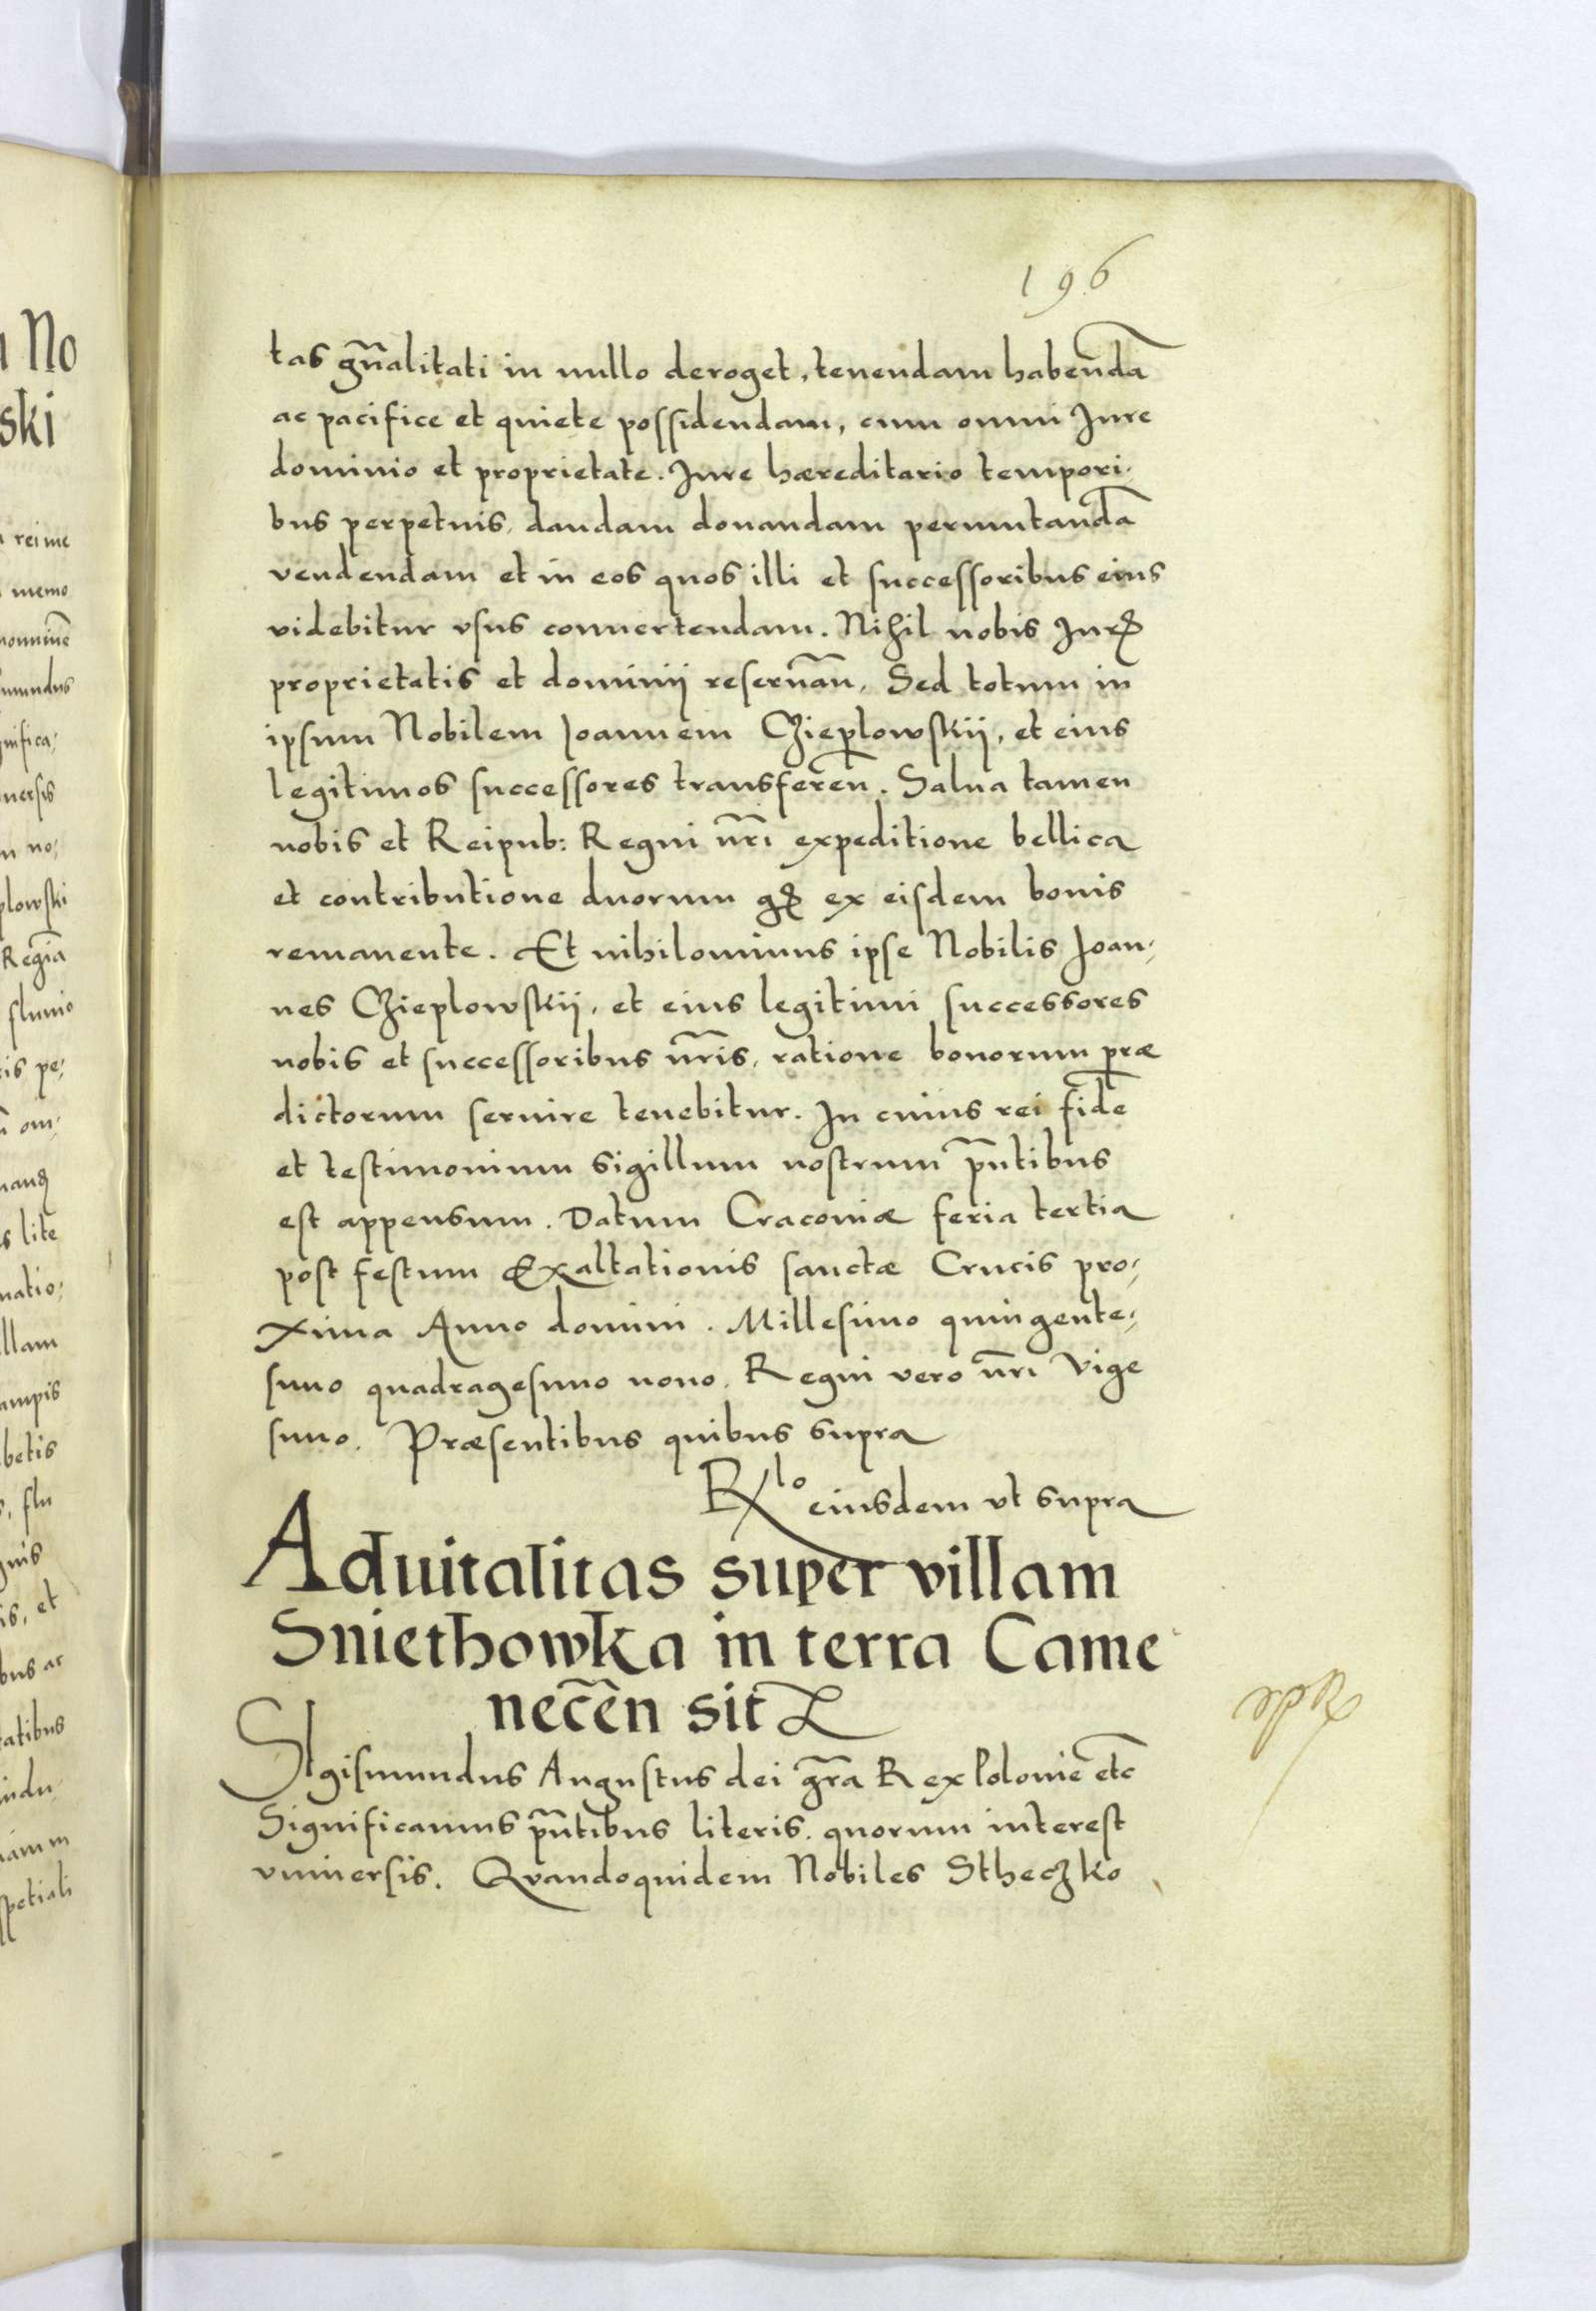 196
tas gñalitati in nullo deroget, tenendam habendã
ac pacifice et quiete possidendam, cum omni Jure
dominio et proprietate. Jure hæreditario tempori-
bus perpetuis, dandam donandam permutandã
vendendam et in eos quos illi et successoribus eius
videbitur vsus conuertendam. Nihil nobis Jurꝭ
proprietatis et dominij reseruãn, Sed totum in
ipsum Nobilem Joannem Czieplowskij, et eius
legitimos successores transferẽn. Salua tamen
nobis et Reipub: Regni nr̃i expeditione bellica
et contributione duorum gꝭ ex eisdem bonis
remanente. Et nihilominus ipse Nobilis Joan-
nes Czieplowskij, et eius legitimi successores
nobis et successoribus nr̃is, ratione bonorum præ
dictorum seruire tenebitur. In cuius rei fidẽ
et testimonium sigillum nostrum pñtibus
est appensum. Datum Cracouiæ feria tertia
post festum Exaltationis sanctæ Crucis pro-
xima Anno domini. Millesimo quingente-
simo quadragesimo nono. Regni vero nr̃i Vige
simo. Præsentibus quibus supra
Rlo eiusdem vt supra
Aduitalitas super villam
Sniethowka in terra Came
necẽn sit
Sigismundus Augustus dei gr̃a Rex Poloniẽ etc̃
Significamus pñtibus literis. quorum interest
vniuersis. Quandoquidem Nobiles Stheczko
No
ski
rei me
memo
plowski
Regiã
pe-
om-
lite
natio-
llam
ampis
betis
flu
et
bus ac